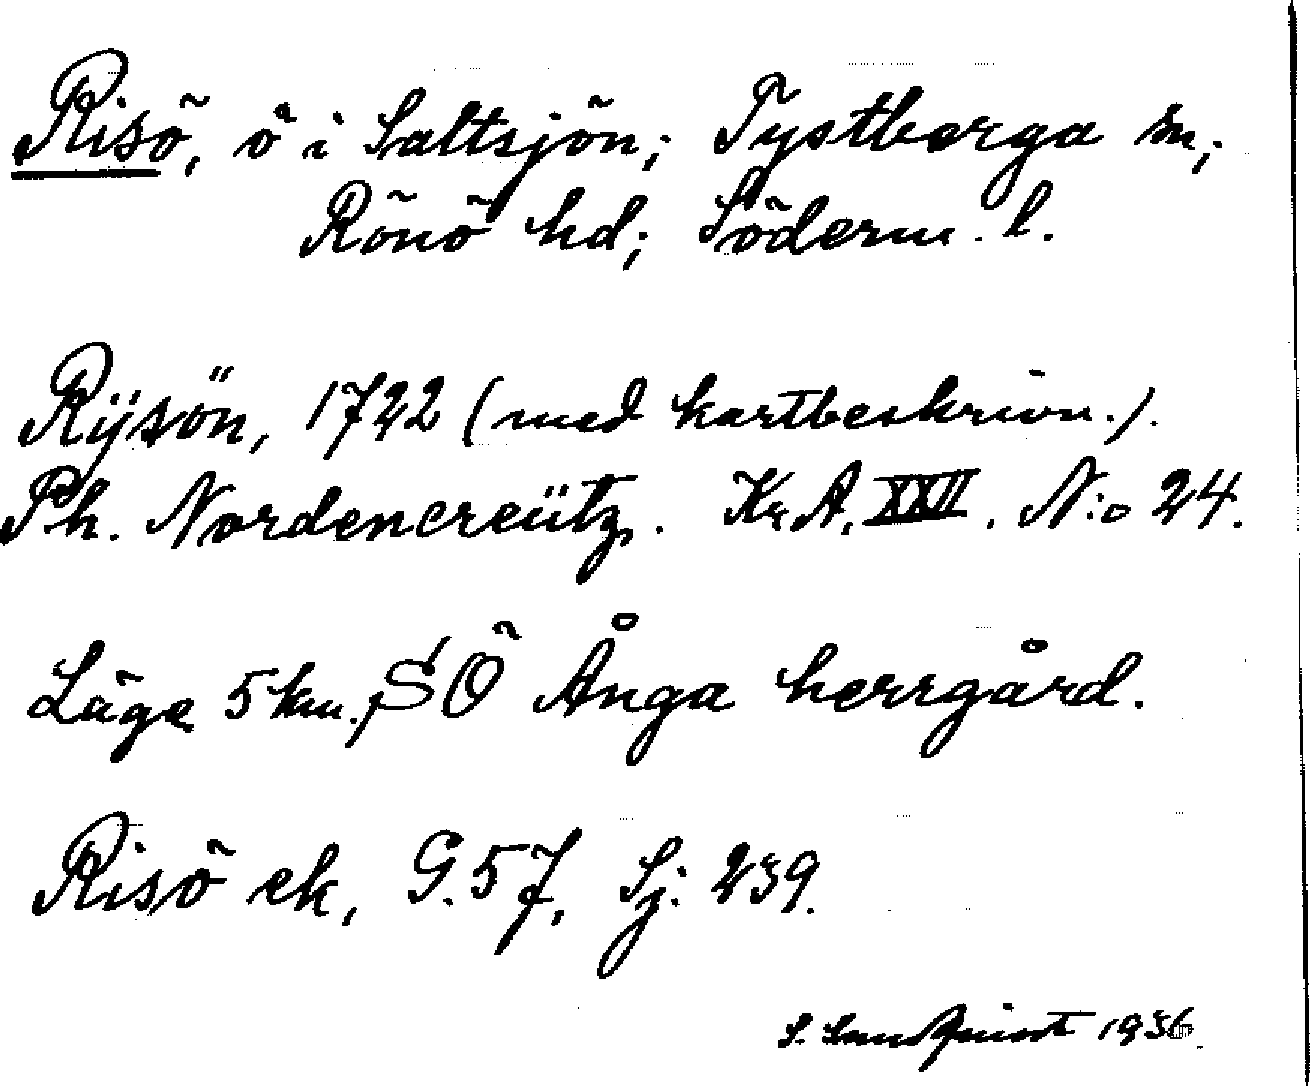 Risö, ö i Saltsjön; Tystberga sn;
Rönö hd; Söderm. l.
Rÿsön, 1722 (med kartbeskrivn.).
Ph. Nordencreütz. Kr. A. XXII. N:o 24.
Läge 5 km. SÖ Ånga herrgård.
Risö ek, G. 57, Sj: 239.
S. Sandquist 1936